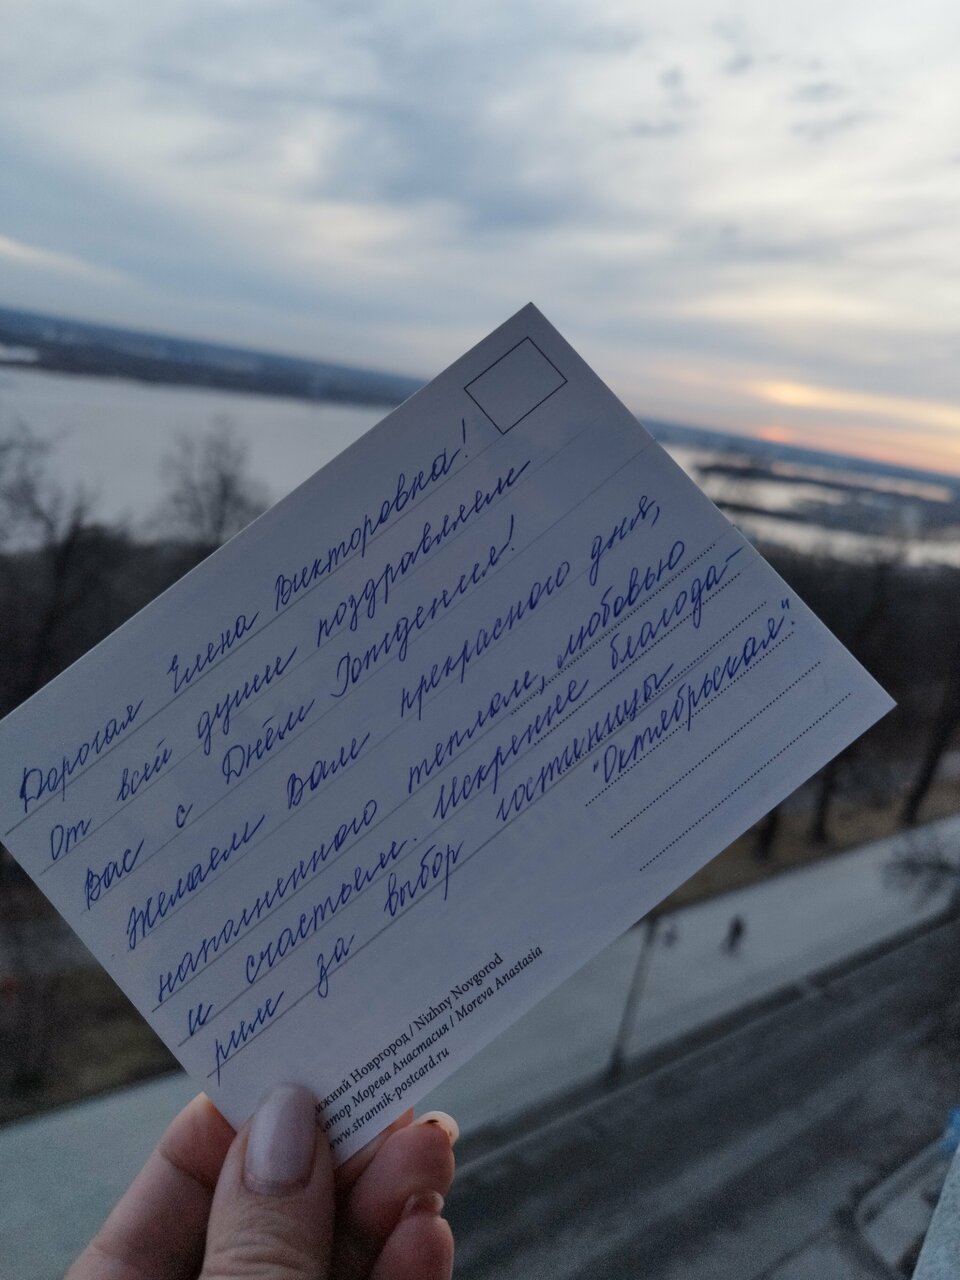 Дорогая Елена Викторовна!
От всей души поздравляем
Вас с Днём Рождения!
Желаем Вам прекрасного дня,
наполненного теплом, любовью
и счастьем. Искренне благода-
рим за выбор гостиницы
"Октябрьская".
ижний Новгород / Nizhny Novgorod
втор Морева Анастасия / Moreva Anastasia
www.strannik-postcard.ru